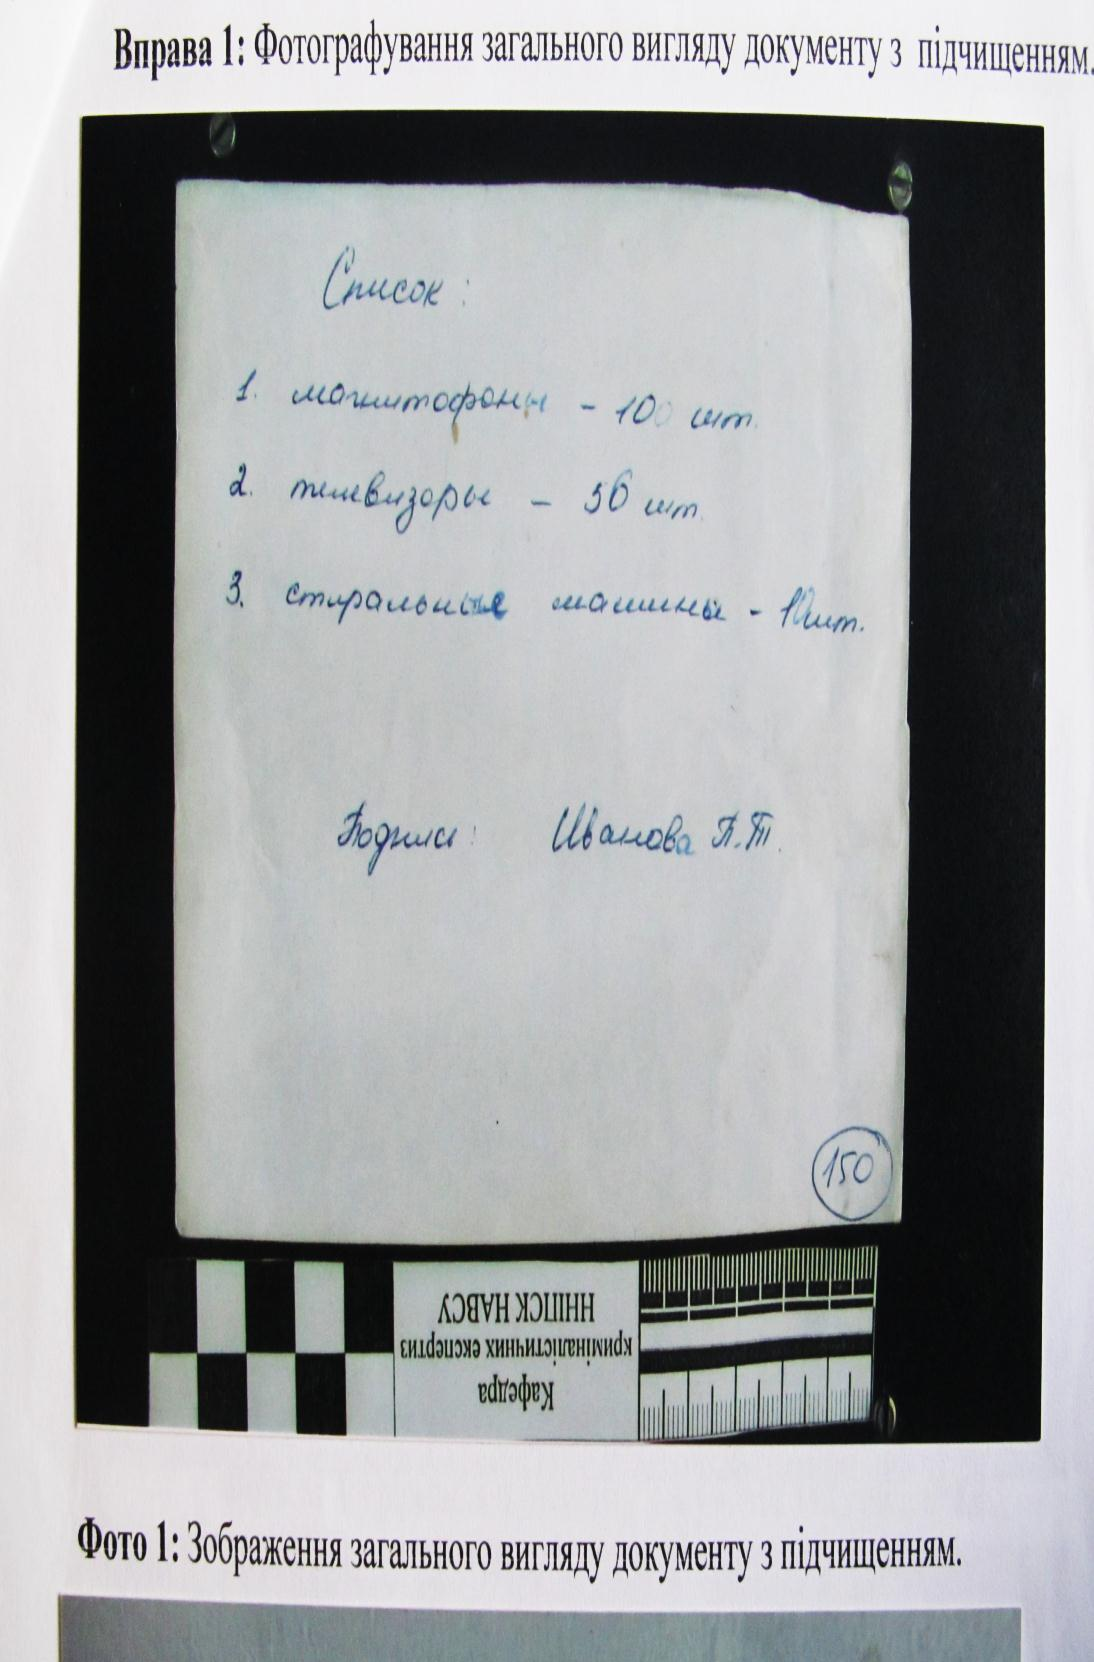 Вправа 1: Фотографування загального вигляду документу з підчищенням.
Список:
1. магнитофоны - 100 шт.
2. телевизоры - 56 шт.
3. стиральные машины - 10 шт.
Подпись: Иванова П.Т.
150
ННІПСК НАВСУ
криміналістичних експертиз
Кафедра
Фото 1: Зображення загального вигляду документу з підчищенням.